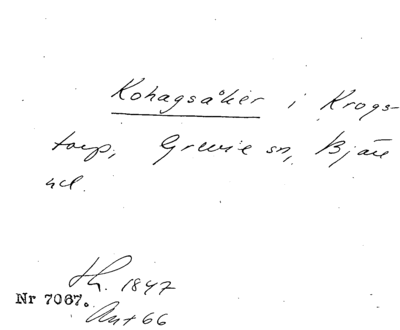 Kohagsåker i Krogs-
torp, Grevie sn, Bjäre
hd.
Sk. 1847
Nr 7067.
Ant 66